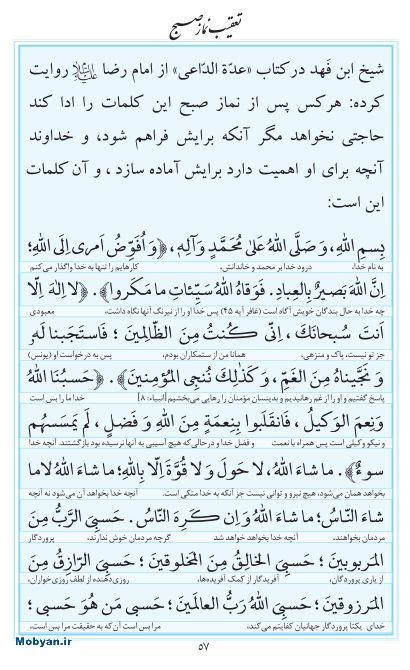 تعقیب نماز صبح
شیخ ابن فَهد در کتاب «عدّة الدّاعی» از امام رضا علیه‌السلام روایت
کرده: هرکس پس از نماز صبح این کلمات را ادا کند
حاجتی نخواهد مگر آنکه برایش فراهم شود، و خداوند
آنچه برای او اهمیت دارد برایش آماده سازد، و آن کلمات
این است:
بِسمِ اللهِ، وَ صَلَّی اللهُ عَلیٰ مُحَمَّدٍ وَ آلِهِ، ﴿وَ اُفَوِّضُ اَمری اِلَی اللهِ؛
به نام خدا، درود خدا بر محمد و خاندانش، کارهایم را تنها به خدا واگذار می‌کنم
اِنَّ اللهَ بَصیرٌ بِالعِبادِ. فَوَقاهُ اللهُ سَیِّئاتِ ما مَکَروا﴾. ﴿لا اِلهَ اِلّا
چه خدا به حال بندگان خویش آگاه است (غافر آیه ۴۵) پس خدا او را از نیرنگ آنها نگاه داشت، معبودی
اَنتَ سُبحانَکَ، اِنّی کُنتُ مِنَ الظّالِمینَ؛ فَاستَجَبنا لَهُ
جز تو نیست، پاک و منزهی، همانا من از ستمکاران بودم، پس به درخواست او (یونس)
وَ نَجَّیناهُ مِنَ الغَمِّ، وَ کَذٰلِکَ نُنجِی المُؤمِنینَ﴾. ﴿حَسبُنَا اللهُ
پاسخ گفتیم و او را از غم رهانیدیم و بدینسان مؤمنان را رهایی می‌بخشیم [انبیاء: ۸] خدا ما را بس است
وَ نِعمَ الوَکیلُ، فَانقَلَبوا بِنِعمَةٍ مِنَ اللهِ وَ فَضلٍ، لَم یَمسَسهُم
و نیکو وکیلی است پس همراه با نعمت و فضل خدا و در حالی که هیچ آسیبی به آنها نرسیده بود بازگشتند. آنچه خدا
سوءٌ﴾. ما شاءَ اللهُ، لا حَولَ وَ لا قُوَّةَ اِلّا بِاللهِ؛ ما شاءَ اللهُ لا ما
بخواهد همان می‌شود، هیچ نیرو و توانی نیست جز آنکه به خدا متکی است. آنچه خدا بخواهد آن می‌شود نه آنچه
شاءَ النّاسُ؛ ما شاءَ اللهُ وَ اِن کَرِهَ النّاسُ. حَسبِیَ الرَّبُّ مِنَ
مردمان بخواهند، آنچه خدا بخواهد خواهد شد گرچه مردمان خوش ندارند، پروردگار
المَربوبینَ؛ حَسبِیَ الخالِقُ مِنَ المَخلوقینَ؛ حَسبِیَ الرّازِقُ مِنَ
از یاری پروردگان، آفریدگار از کمک آفریده‌ها، روزی‌دهنده از لطف روزی‌خواران،
المَرزوقینَ؛ حَسبِیَ اللهُ رَبُّ العالَمینَ؛ حَسبی مَن هُوَ حَسبی؛
خدای یکتا پروردگار جهانیان کفایتم می‌کند، مرا بس است آن که به حقیقت مرا بس است،
۵۷
Mobyan.ir